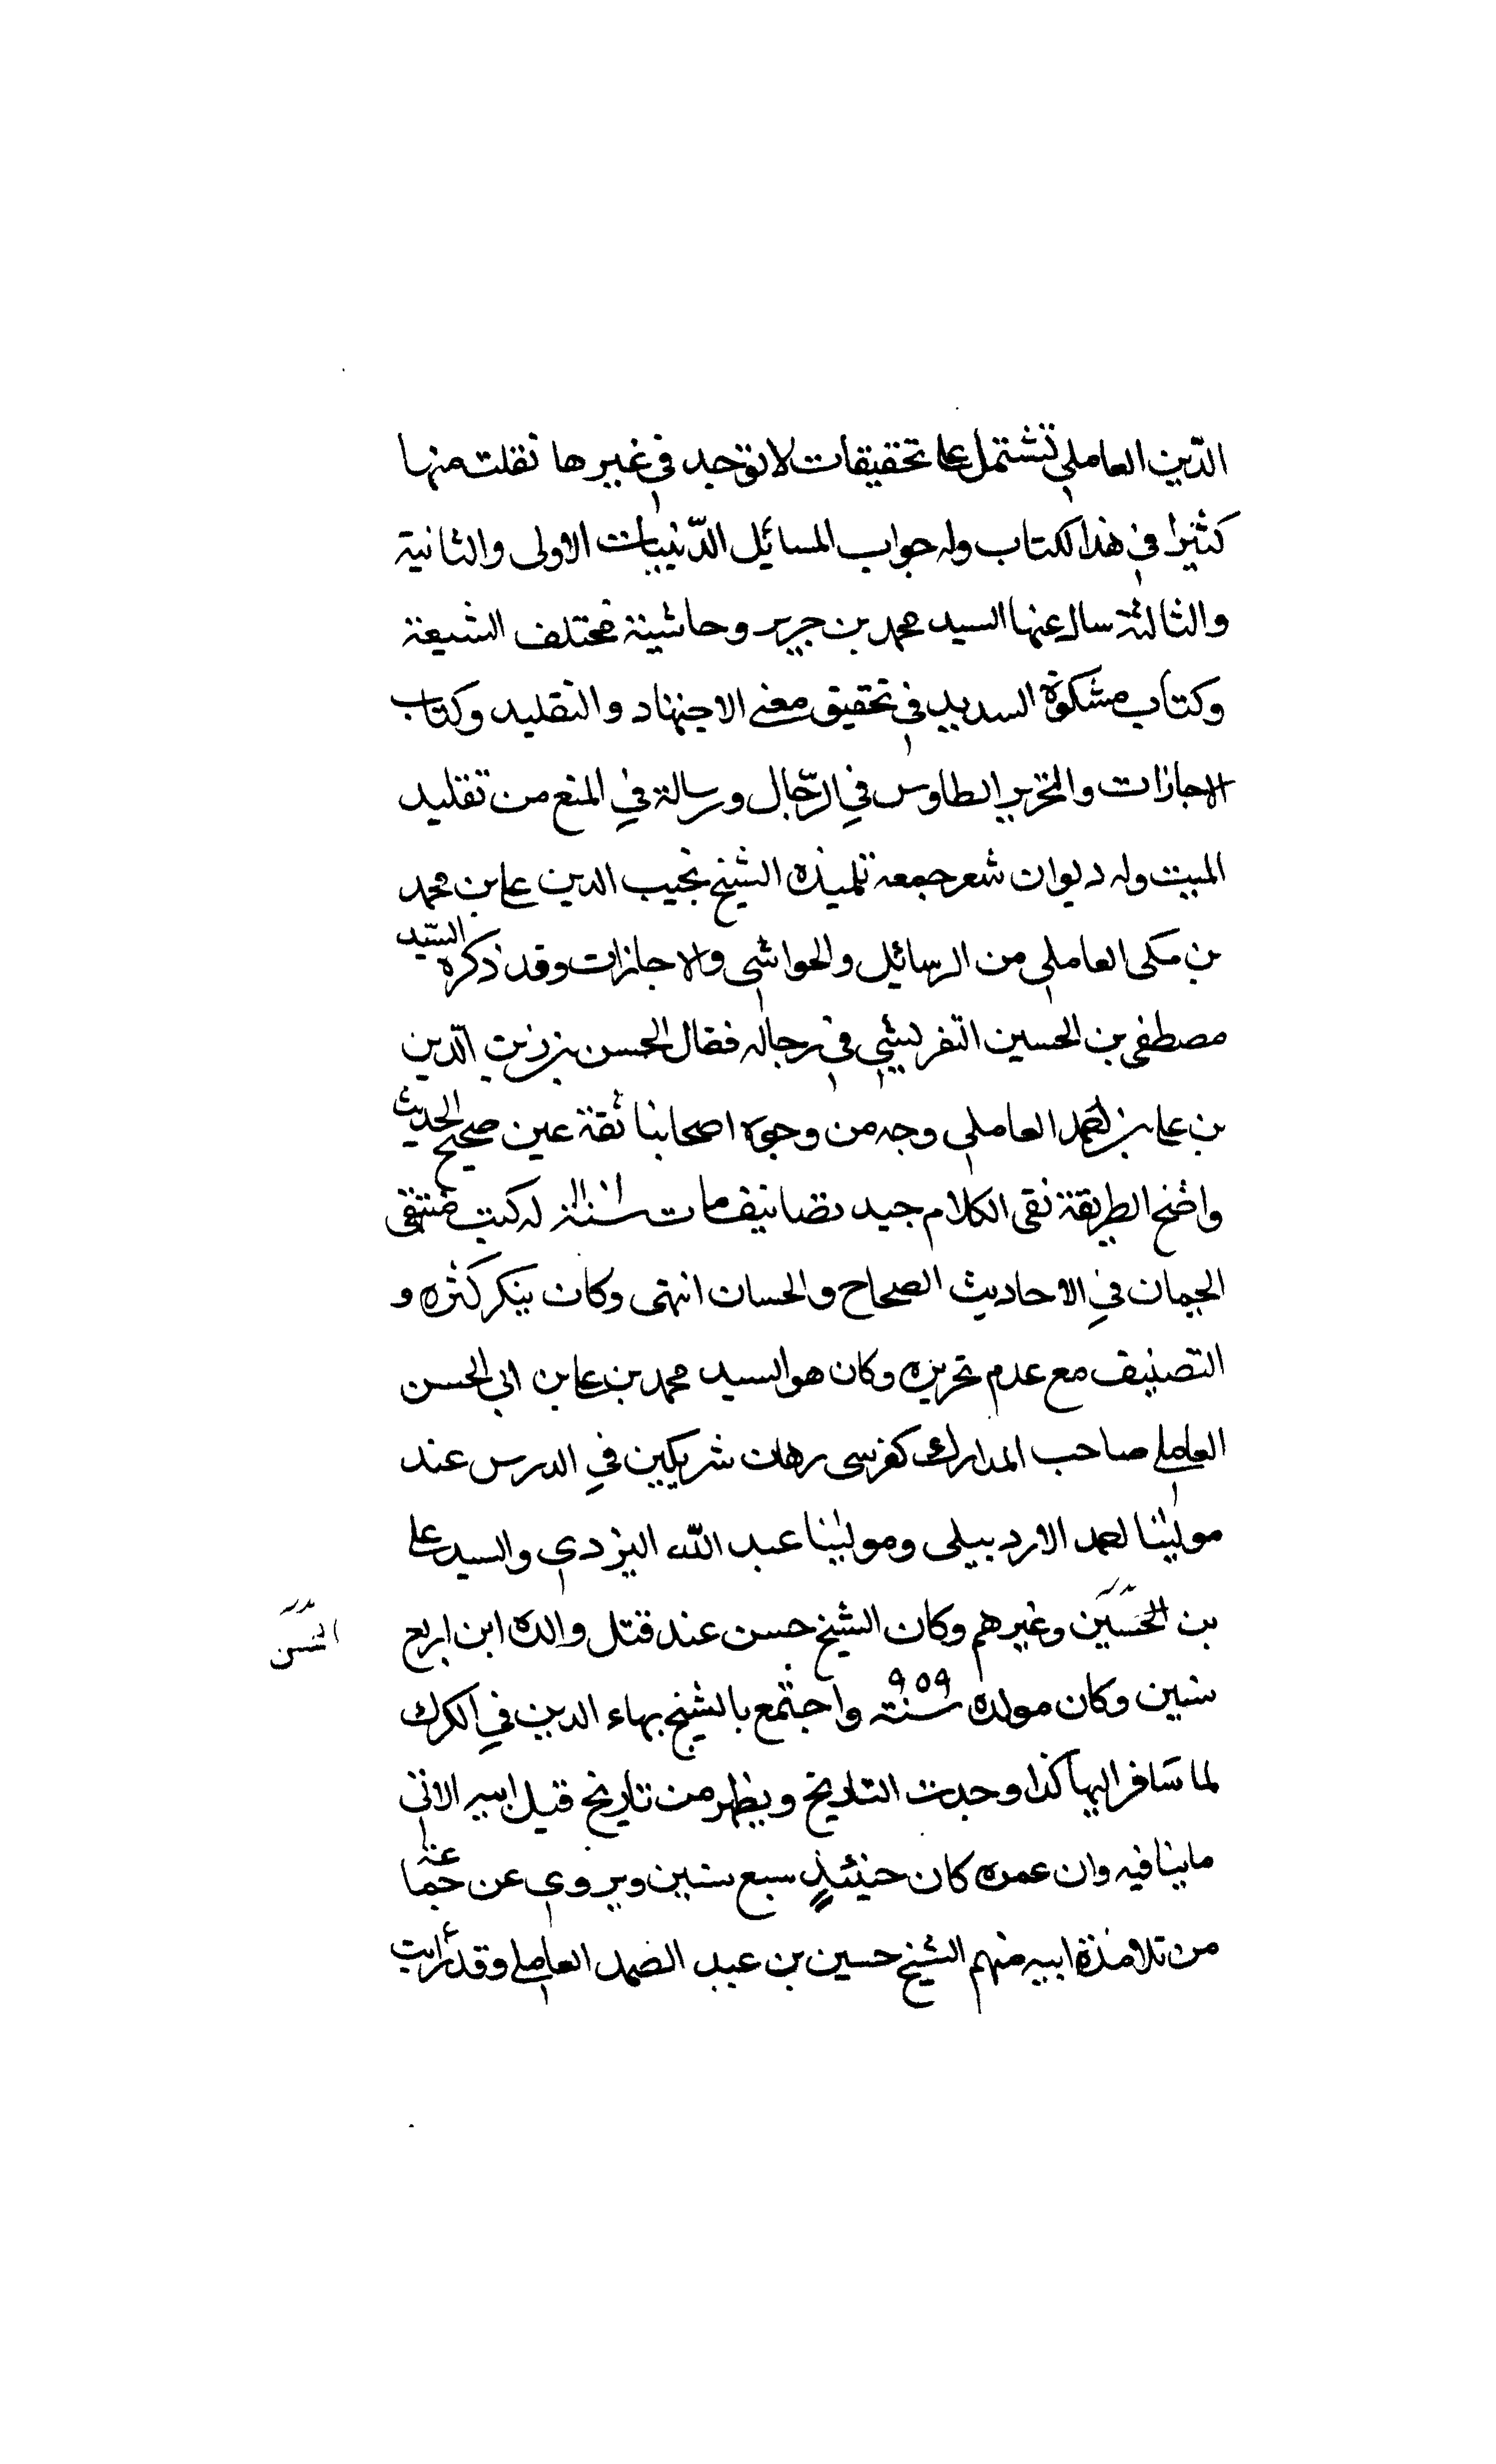 الدّين العاملي تشتمل على تحقيقات لا توجد في غيرها نقلت منها
كثيرا في هذا الكتاب وله جواب المسائل الدّنيات الاولى والثانية
والثالثة سال عنها السيد محمد بن جرير وحاشية مختلف الشيعة
وكتاب مشكوة السديد في تحقيق معنى الاجتهاد والتقليد وكتاب
الاجازات والتحرير الطاوس في الرّجال ورسالة في المنع من تقليد
الميت وله ديوان شعر جمعه تلميذه الشيخ نجيب الدين على بن محمد
بن مكى العاملي من الرسائل والحواشي والاجازات وقد ذكره السيّد
مصطفى بن الحسين التفريشي في رجاله فقال الحسن بن زين الدّين
بن على بن احمد العاملي وجه من وجوه اصحابنا ثقة عين صحيح الحديث
واضح الطريقة نقى الكلام جيد تصانيف مات سنة له كتب منتقى
الجمان في الاحاديث الصحاح والحسان انتهى وكان ينكر كثره و
التصنيف مع عدم تحريره وكان هو السيد محمد بن على بن ابي الحسن
العاملي صاحب المدارك كفرسى رهان شريكين في الدرس عند
مولينا احمد الاردبيلى ومولينا عبد الله اليزدي والسيد على
بن الحسين وغيرهم وكان الشيخ حسن عند قتل والده ابن اربع
سنين وكان مولده سنة ٩٥٩ واجتمع بالشيخ بهاء الدين في الكرك
لما سافر اليها كذا وجدت التاريخ ويظهر من تاريخ قتل ابيه الاتى
ما ينافيه وان عمره كان حينئذٍ سبع سنين ويروي عن جماعة
من تلامذة ابيه منهم الشيخ حسين بن عبد الصمد العاملي وقد رأيت